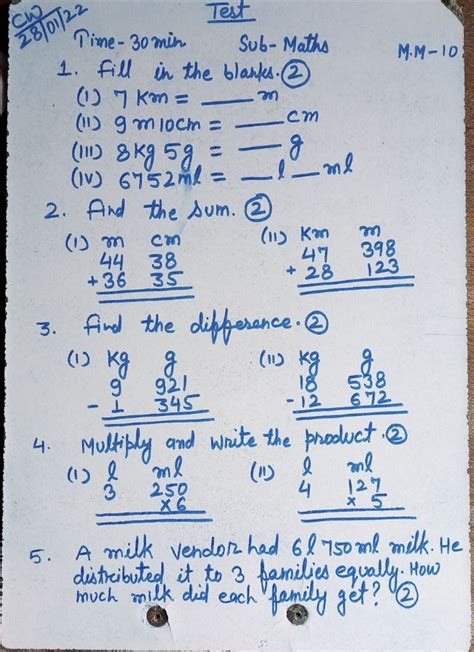 CW
28/01/22
Test
Time - 30 min Sub - Maths M.M - 10
1. Fill in the blanks. (2)
(I) 7 Km = ___ m
(II) 9 m 10 cm = ___ cm
(III) 8 Kg 5 g = ___ g
(IV) 6752 ml = __ l __ ml
2. Find the sum. (2)
(I) m cm (II) Km m
44 38 47 398
+ 36 35 + 28 123
3. Find the difference. (2)
(I) Kg g (II) Kg g
9 921 18 538
- 1 345 - 12 672
4. Multiply and write the product. (2)
(I) l ml (II) l ml
3 250 4 127
× 6 × 5
5. A milk vendor had 6 l 750 ml milk. He
distributed it to 3 families equally. How
much milk did each family get? (2)